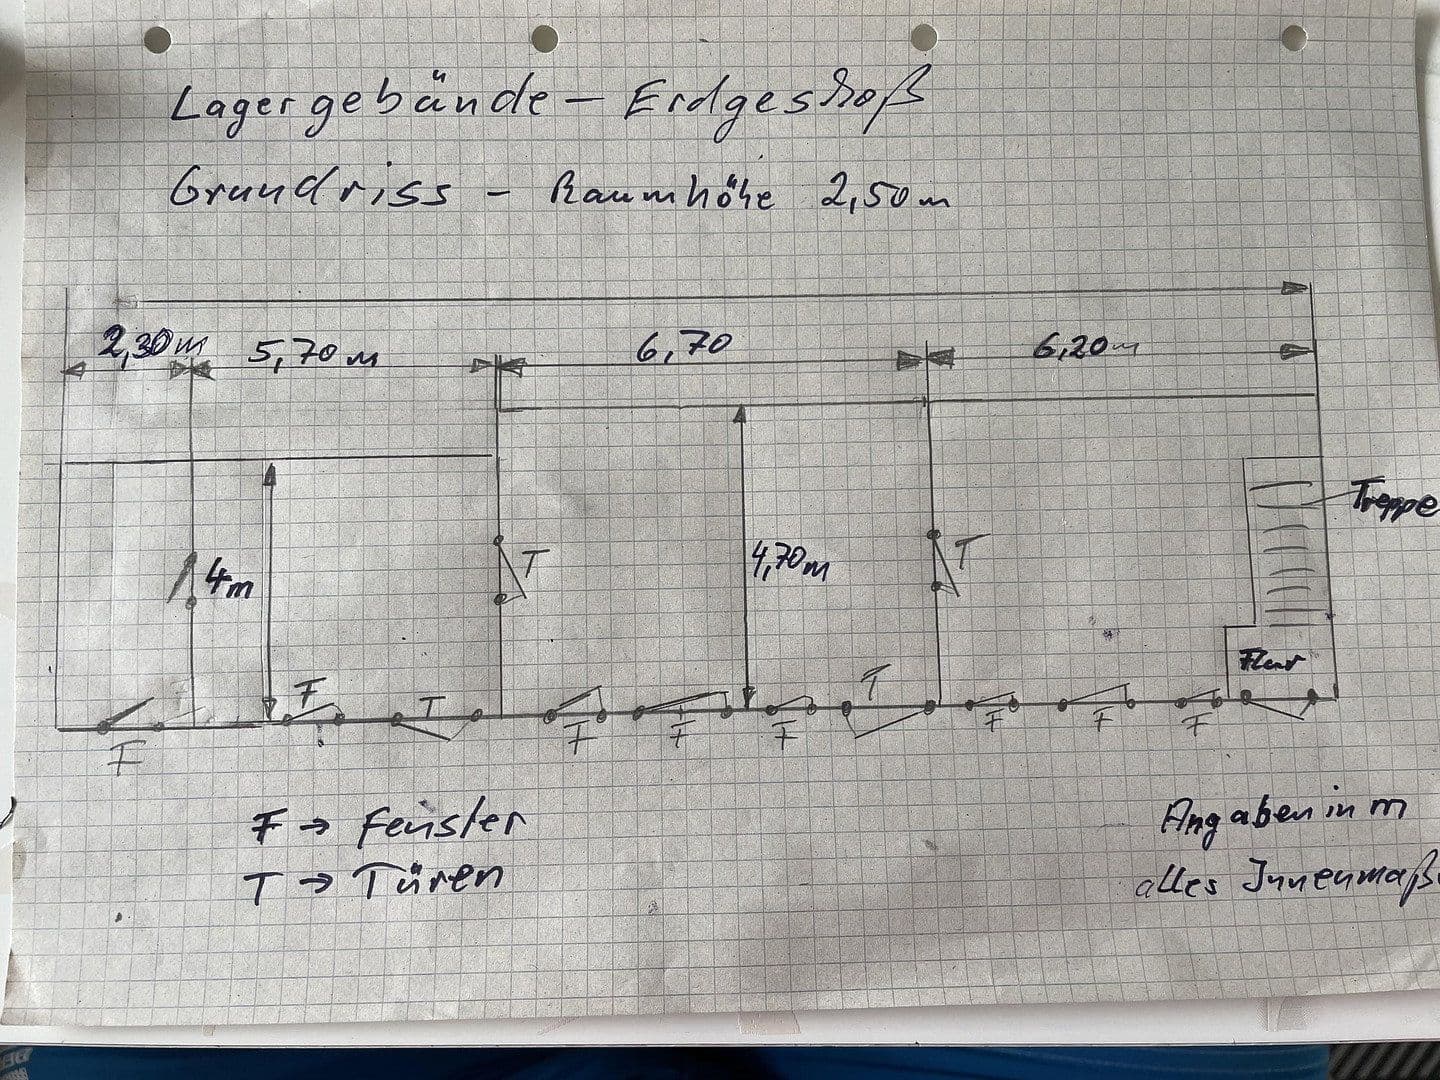 Lagergebäude – Erdgeschoß
Grundriss – Raumhöhe 2,50m
2,30m 5,70m 6,70 6,20m
Treppe
4m T 4,70m T
Flur
F T T
F F F F F F F
F → Fenster
T → Türen
Angaben in m
alles Innenmaße